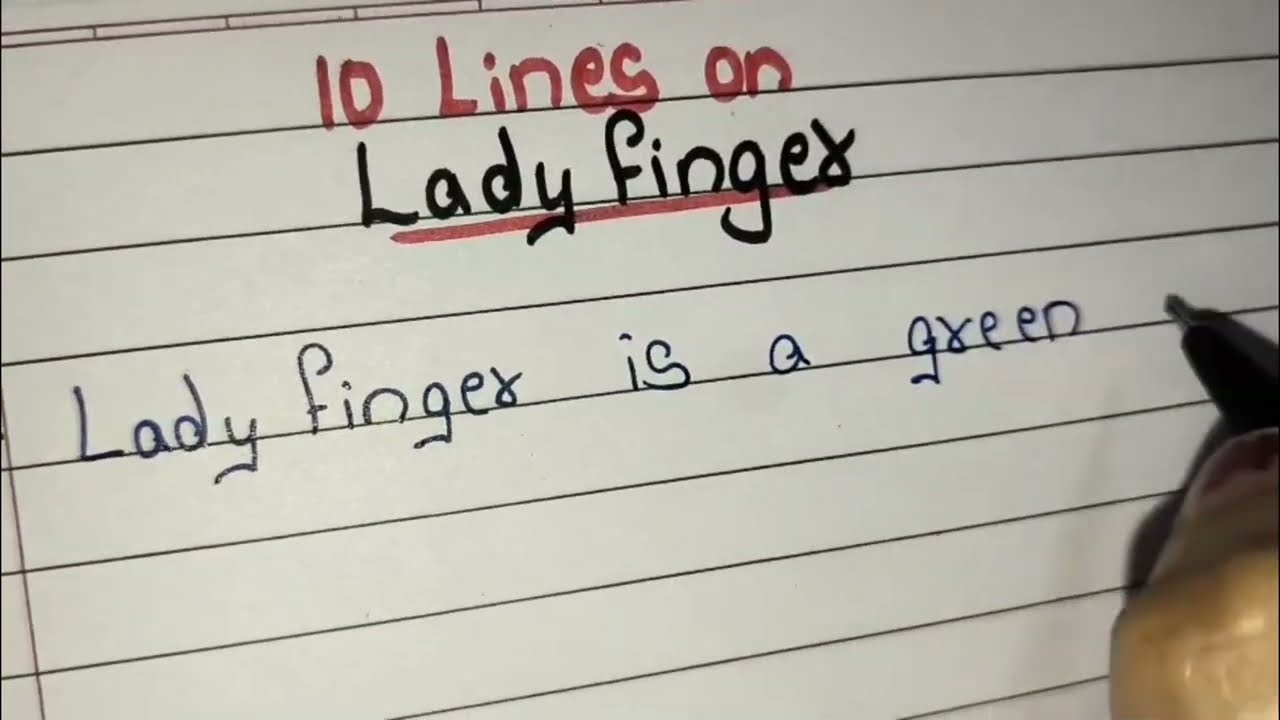 10 Lines on
Lady finger
Lady finger is a green